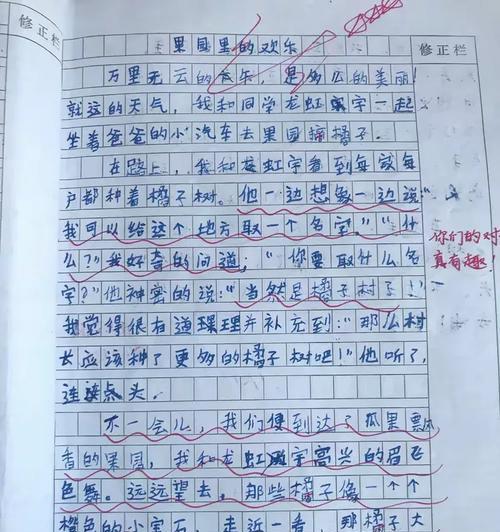 修正栏
果园里的欢乐
修正栏
万里无云的天乐，是多么的美丽！
就这的天气，我和同学龙虹宇一起
坐着爸爸的小汽车去果园摘橘子。
在路上，我和龙虹宇看到每家每
户都种着橘子树。他一边想象一边说：“
我可以给这个地方取一个名字。”“什
么？”我好奇的问道，“你要取什么名
字？”他神密的说：“当然是橘子村了！”
我觉得很有道理并补充到：“那么村
长应该种了更多的橘子树吧！”他听了，
连连点头。
你们的对
真有趣！
不一会儿，我们便到达了瓜果飘
香的果园，我和龙虹宇高兴的眉飞
色舞。远远望去，那些橘子像一个个
橙色的小宝石，走近一看，那橘子大